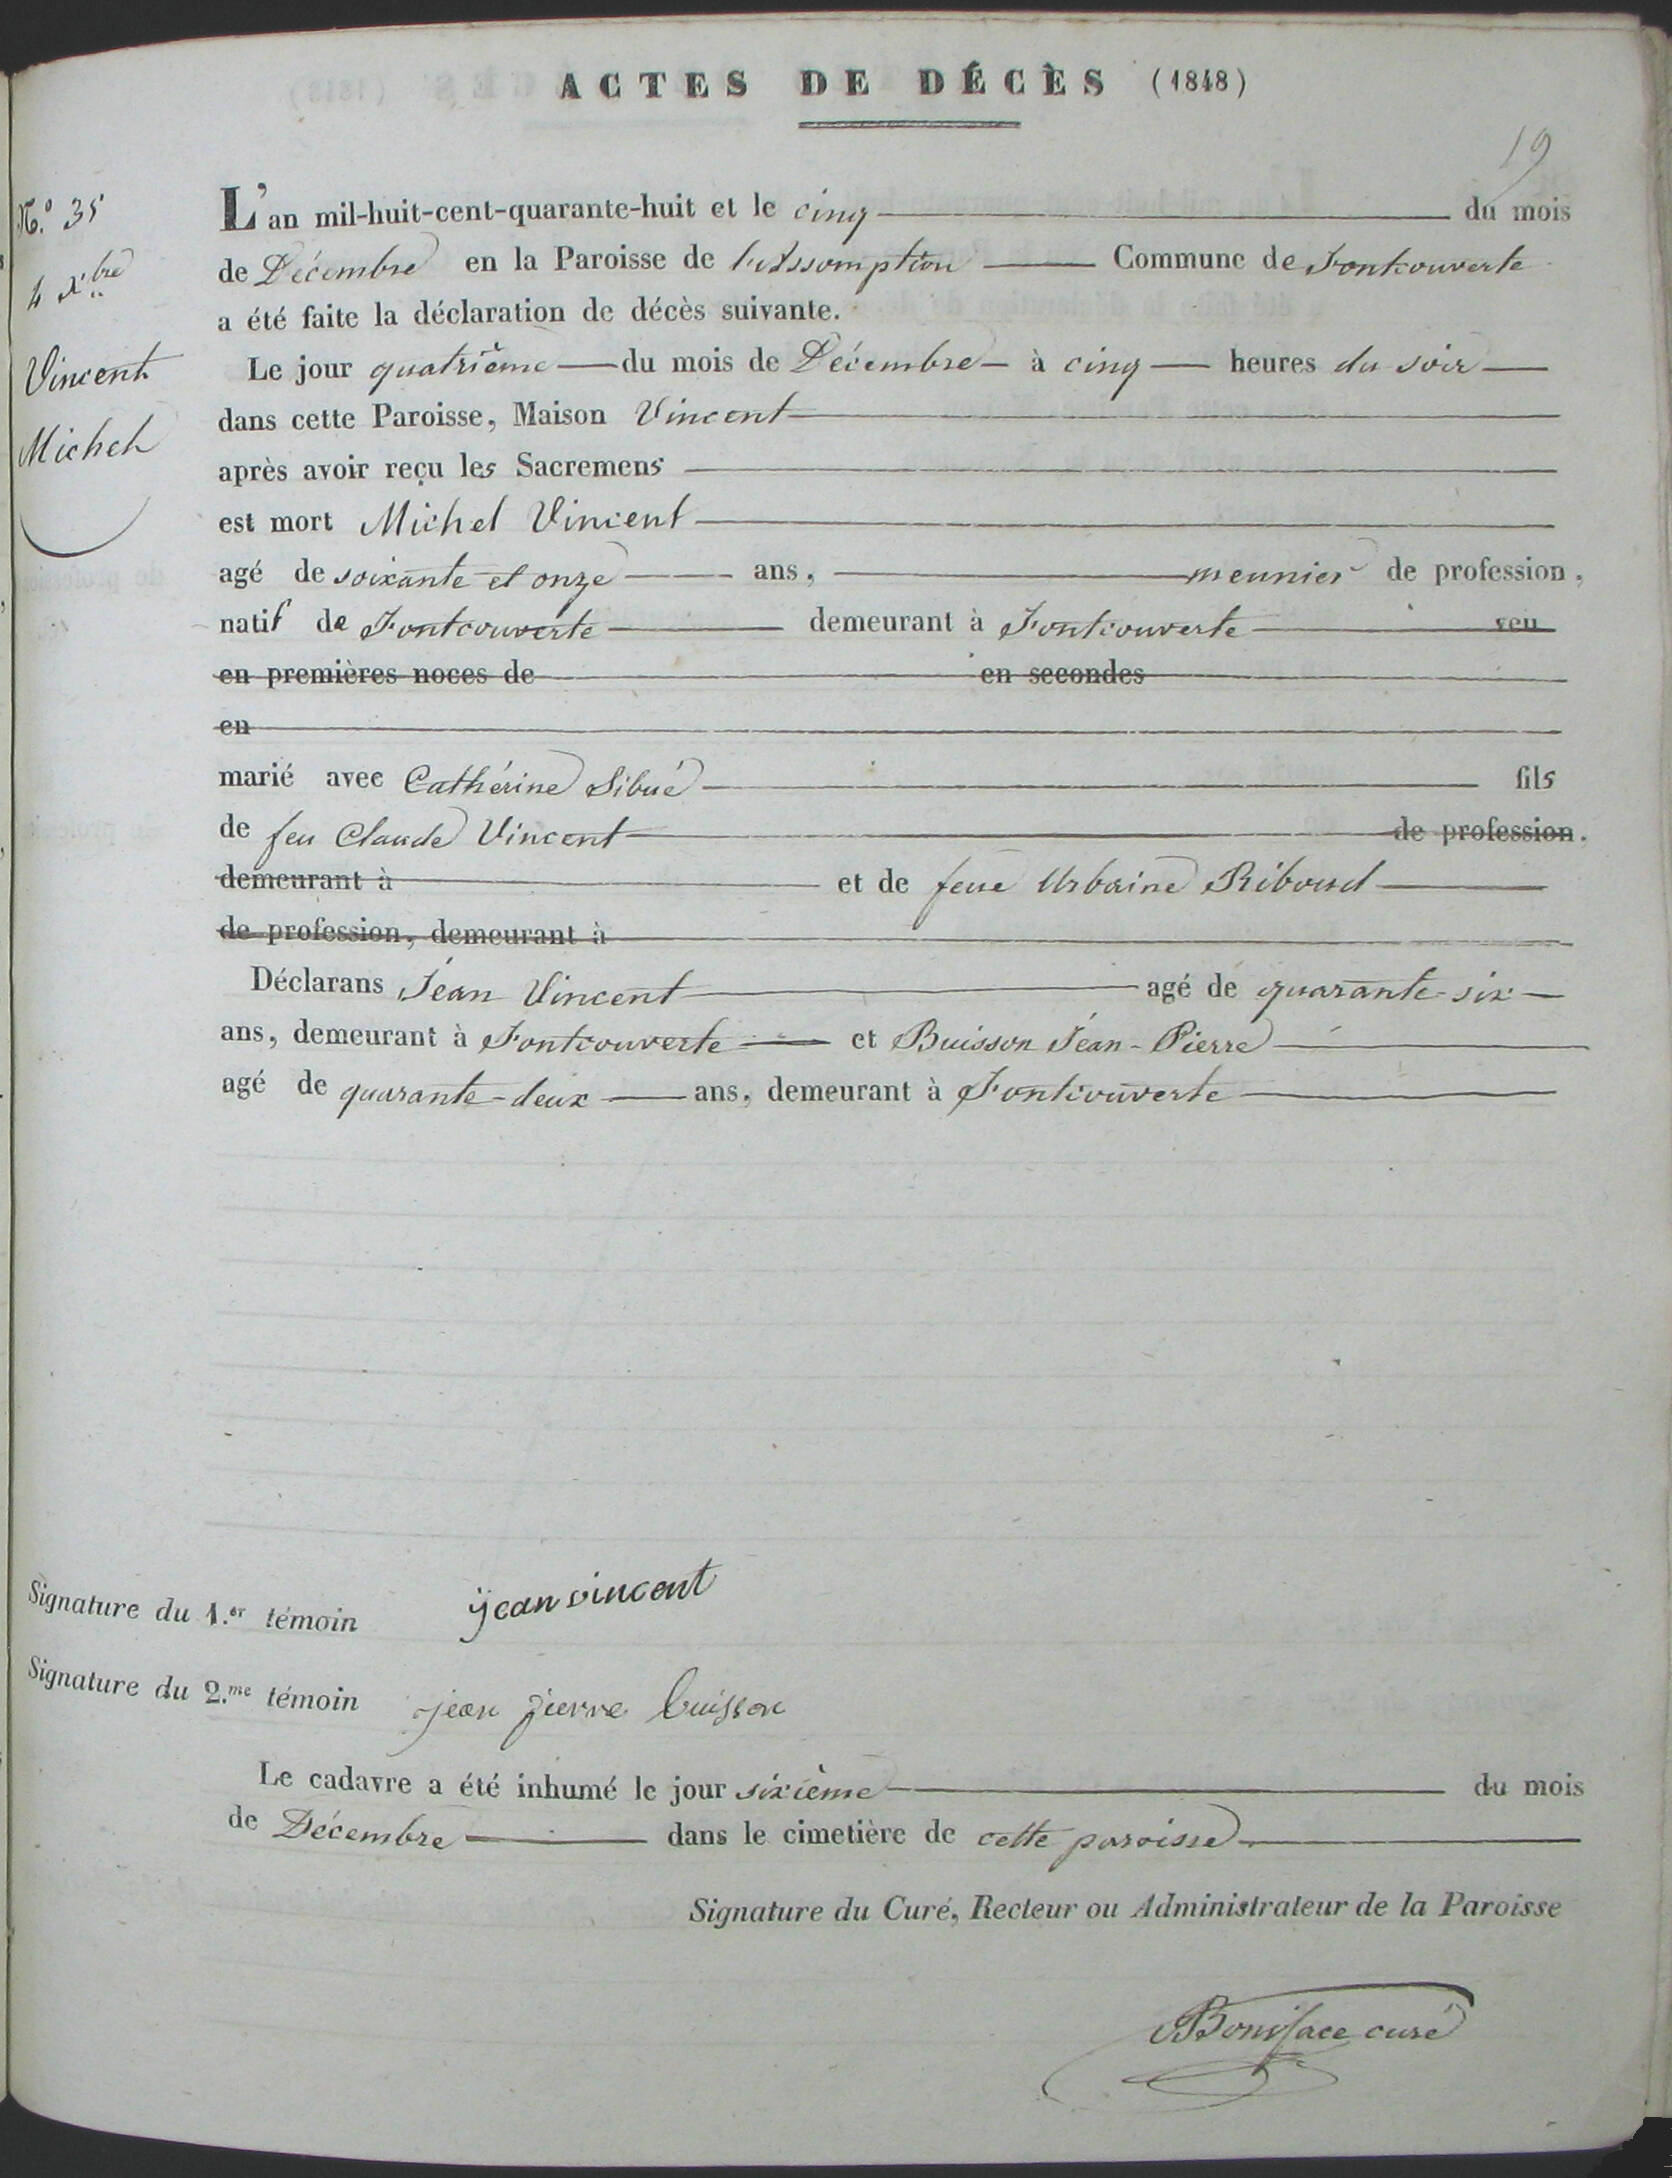 ACTES DE DÉCÈS (1848)
19
N.º 35
4 Xbre
Vincent
Michel
L'an mil-huit-cent-quarante-huit et le cinq du mois
de Décembre en la Paroisse de l'Assomption Commune de Fontcouverte
a été faite la déclaration de décès suivante.
Le jour quatrième du mois de Décembre à cinq heures du soir
dans cette Paroisse, Maison Vincent
après avoir reçu les Sacremens
est mort Michel Vincent
agé de soixante et onze ans, meunier de profession,
natif de Fontcouverte demeurant à Fontcouverte veu
en premières noces de en secondes
en
marié avec Cathérine Sibué fils
de feu Claude Vincent de profession.
demeurant à et de feue Urbaine Riboud
de profession, demeurant à
Déclarans Jean Vincent agé de quarante-six
ans, demeurant à Fontcouverte et Buisson Jean-Pierre
agé de quarante-deux ans, demeurant à Fontcouverte
Signature du 1.er témoin jean vincent
Signature du 2.me témoin jean pierre buisson
Le cadavre a été inhumé le jour sixième du mois
de Décembre dans le cimetière de cette paroisse
Signature du Curé, Recteur ou Administrateur de la Paroisse
Boniface curé